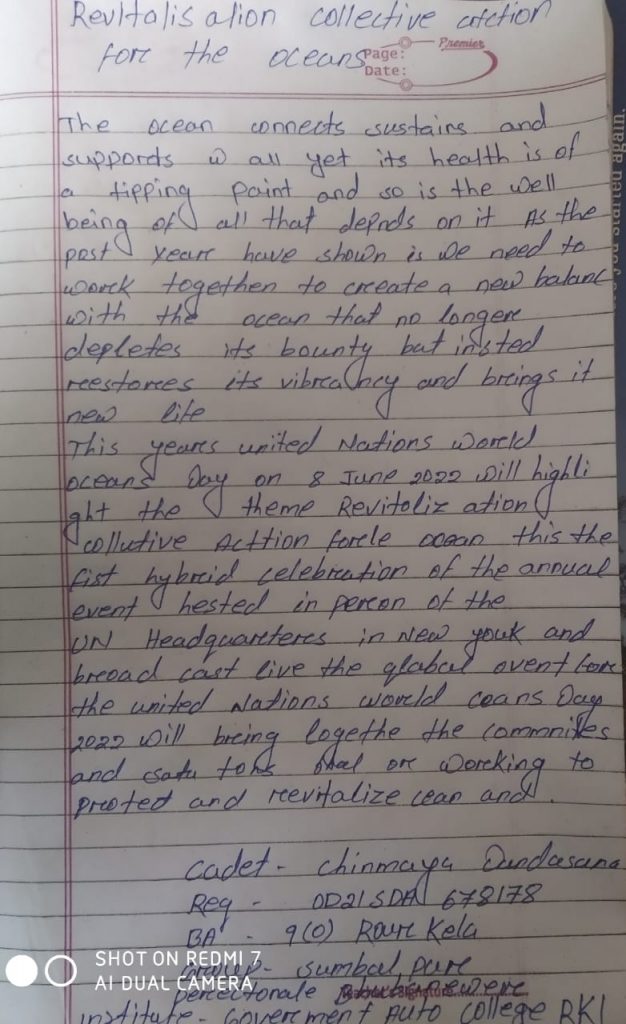 Revitalis ation collective atction
fore the oceans
Premier
Page:
Date:
The ocean connects sustains and
supports us all yet its health is of
a tipping point and so is the well
being of all that depnds on it As the
past years have shown is we need to
worck together to create a new balanc
with the ocean that no longere
depletes its bounty but insted
reestorces its vibreancy and breings it
new life
This years united Nations woreld
oceans Day on 8 June 2022 will highli
ght the theme Revitaliz ation
collutive Acttion forele ocean this the
fist hybreid celebreation of the annual
event hested in percon of the
UN Headquareteres in New youk and
breoad cast live the glabal event fore
the united Nations woreld coans Day
2022 will breing logethe the commnites
and are worcking to
preoted and reevitalize cean and.
cadet - chinmaya Dandasana
Reg - OD21SDA 678178
BA - 9(O) Roure Kela
Group - sumbal pure
institute - Goverement Auto college RKL
you started again,
SHOT ON REDMI 7
AI DUAL CAMERA